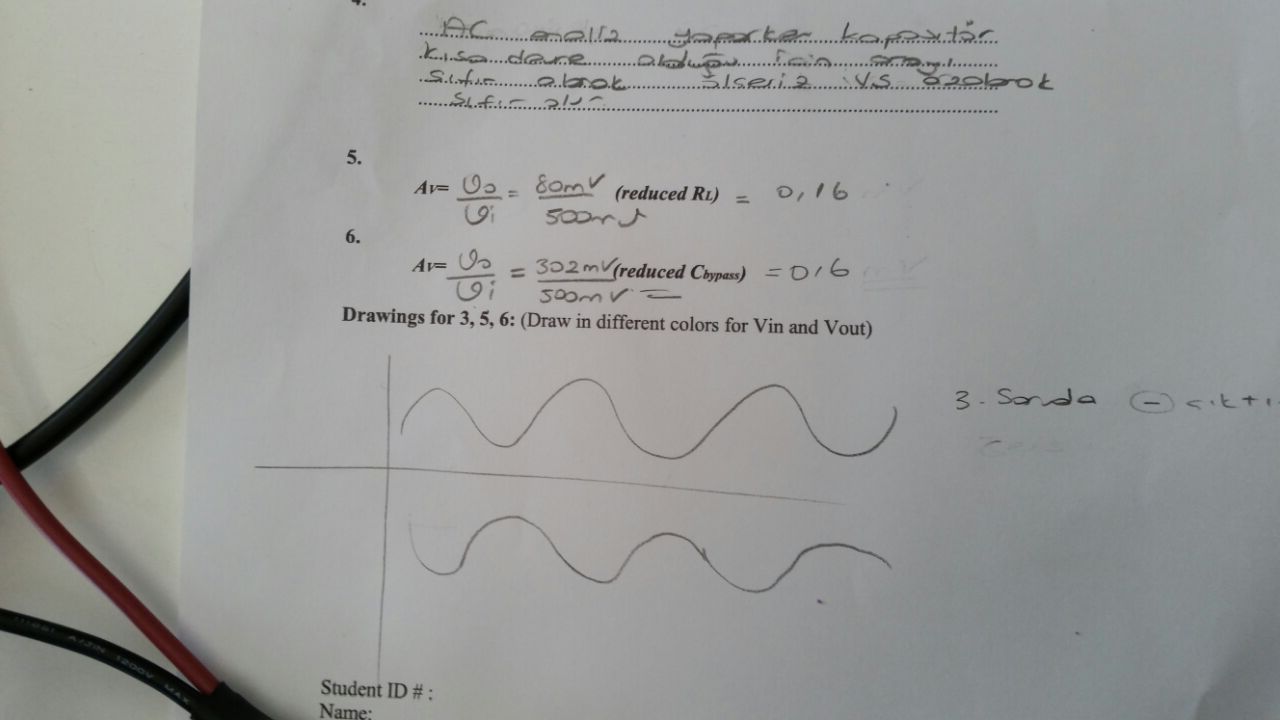 4.
AC analiz yaparken kapasitör
kısa devre olduğu için arayı
sıfır olarak ölseriz VS özolarak
sıfır olur
5.
Av= Vo/Vi = 80mV/500mV (reduced RL) = 0,16
6.
Av= Vo/Vi = 302mV/500mV (reduced Cbypass) = 0,6
Drawings for 3, 5, 6: (Draw in different colors for Vin and Vout)
3. Soruda (-) çıktı
Student ID # :
Name:
1200V MAX